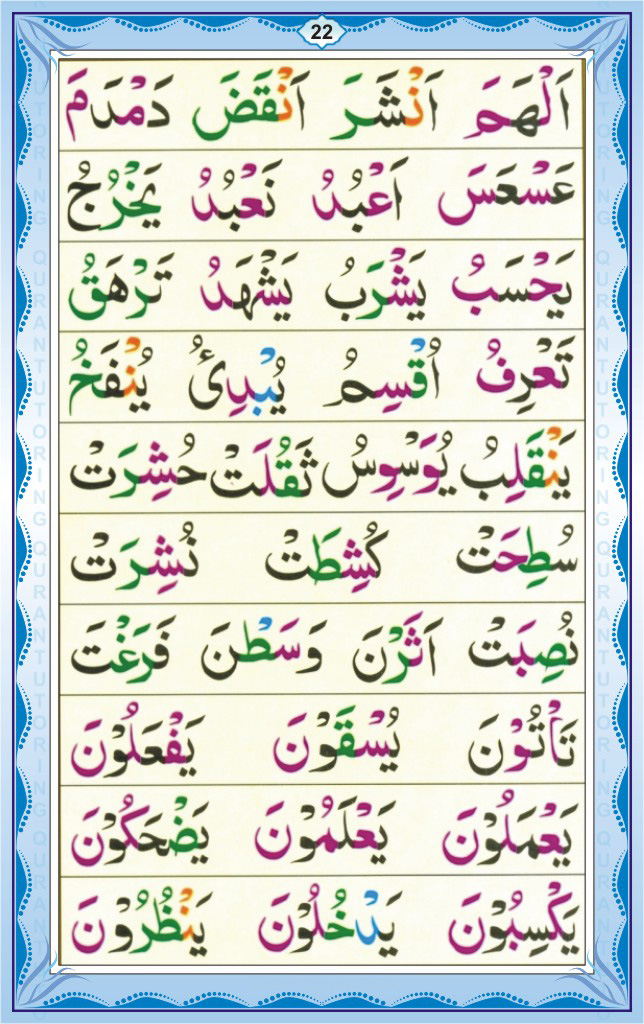 22
اَلْهَمَ اَنْشَرَ اَنْقَضَ دَمْدَمَ
عَسْعَسَ اَعْبُدُ نَعْبُدُ يَخْرُجُ
يَحْسَبُ يَشْرَبُ يَشْهَدُ تَرْهَقُ
تَعْرِفُ اُقْسِمُ يُبْدِئُ يُنْفَخُ
يَنْقَلِبُ يُوَسْوِسُ ثَقُلَتْ حُشِرَتْ
سُطِحَتْ كُشِطَتْ نُشِرَتْ
نُصِبَتْ اَثَرْنَ وَسَطْنَ فَرَغْتَ
تَأْتُوْنَ يُسْقَوْنَ يَفْعَلُوْنَ
يَعْمَلُوْنَ يَعْلَمُوْنَ يَضْحَكُوْنَ
يَكْسِبُوْنَ يَدْخُلُوْنَ يَنْظُرُوْنَ
QURAN TUTORING QURAN TUTORING QURAN TUTORING
QURAN TUTORING QURAN TUTORING QURAN TUTORING